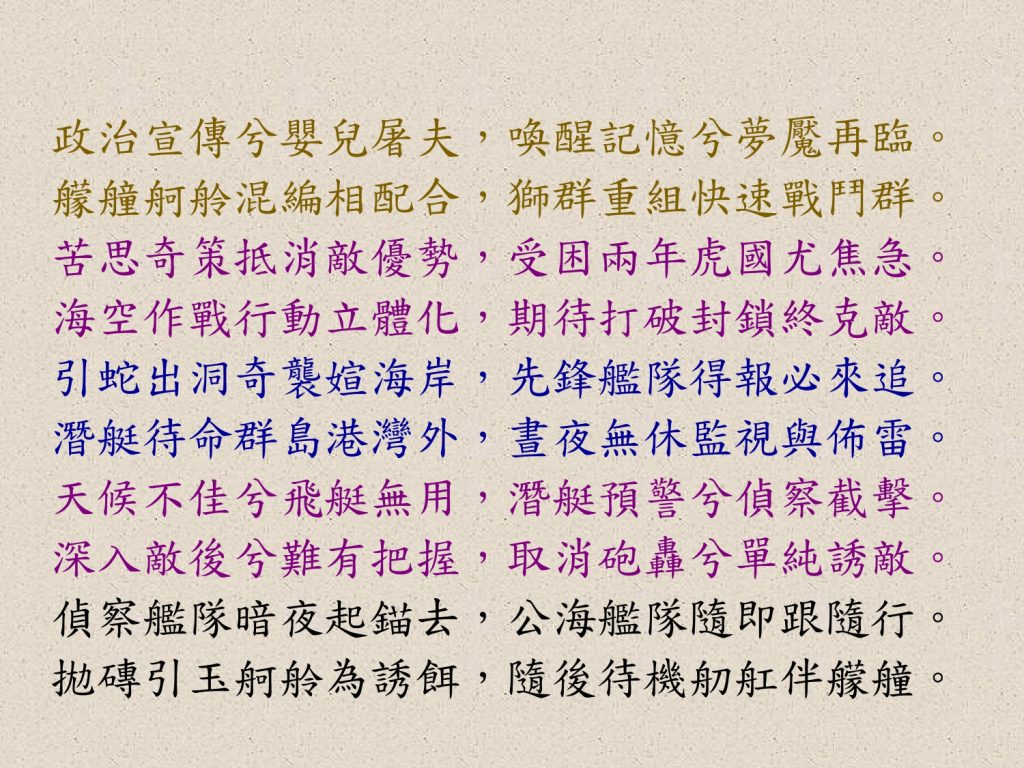 政治宣傳兮嬰兒屠夫，喚醒記憶兮夢魘再臨。
艨艟舸舲混編相配合，獅群重組快速戰鬥群。
苦思奇策抵消敵優勢，受困兩年虎國尤焦急。
海空作戰行動立體化，期待打破封鎖終克敵。
引蛇出洞奇襲媗海岸，先鋒艦隊得報必來追。
潛艇待命群島港灣外，晝夜無休監視與佈雷。
天候不佳兮飛艇無用，潛艇預警兮偵察截擊。
深入敵後兮難有把握，取消砲轟兮單純誘敵。
偵察艦隊暗夜起錨去，公海艦隊隨即跟隨行。
拋磚引玉舸舲為誘餌，隨後待機舠舡伴艨艟。